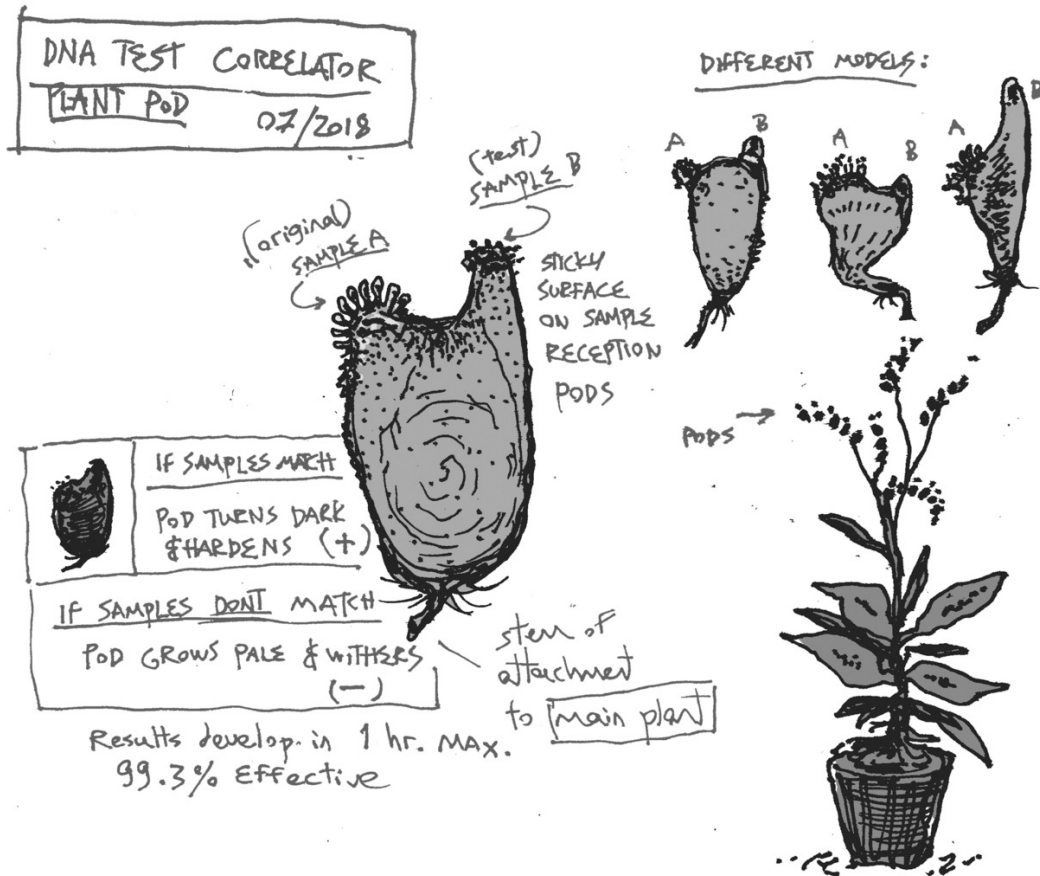 DNA TEST CORRELATOR
PLANT POD
07/2018
DIFFERENT MODELS:
A
B
A
B
A
B
(original)
SAMPLE A
(test)
SAMPLE B
STICKY
SURFACE
ON SAMPLE
RECEPTION
PODS
PODS
IF SAMPLES MATCH
POD TURNS DARK
& HARDENS (+)
IF SAMPLES DONT MATCH
POD GROWS PALE & WITHERS
(-)
stem of
attachment
to main plant
Results develop in 1 hr. MAX.
99.3% Effective